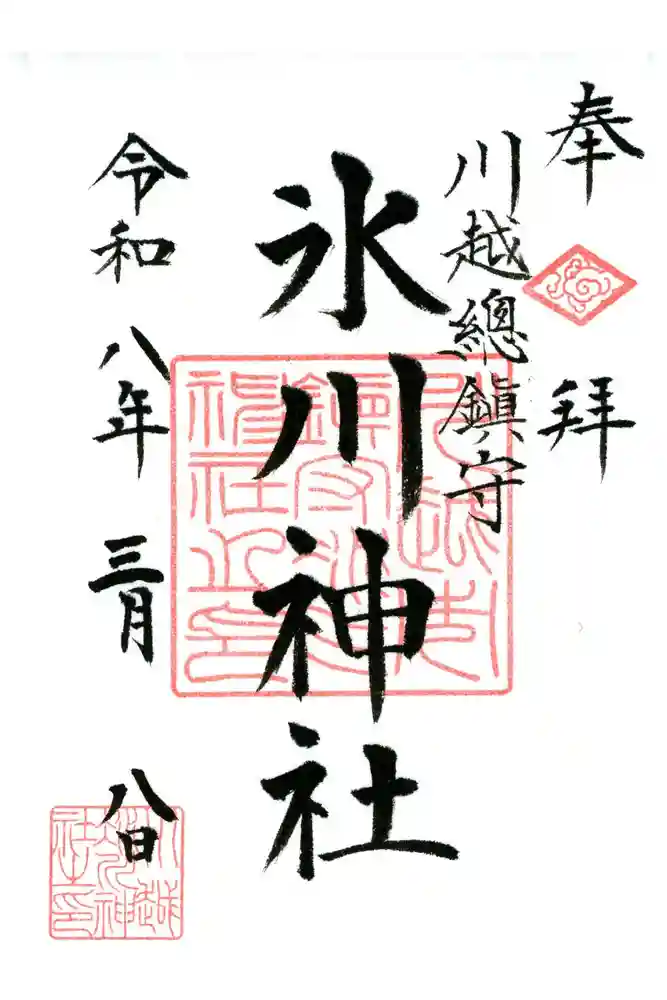 奉拜
川越總鎮守
氷川神社
令和八年三月八日